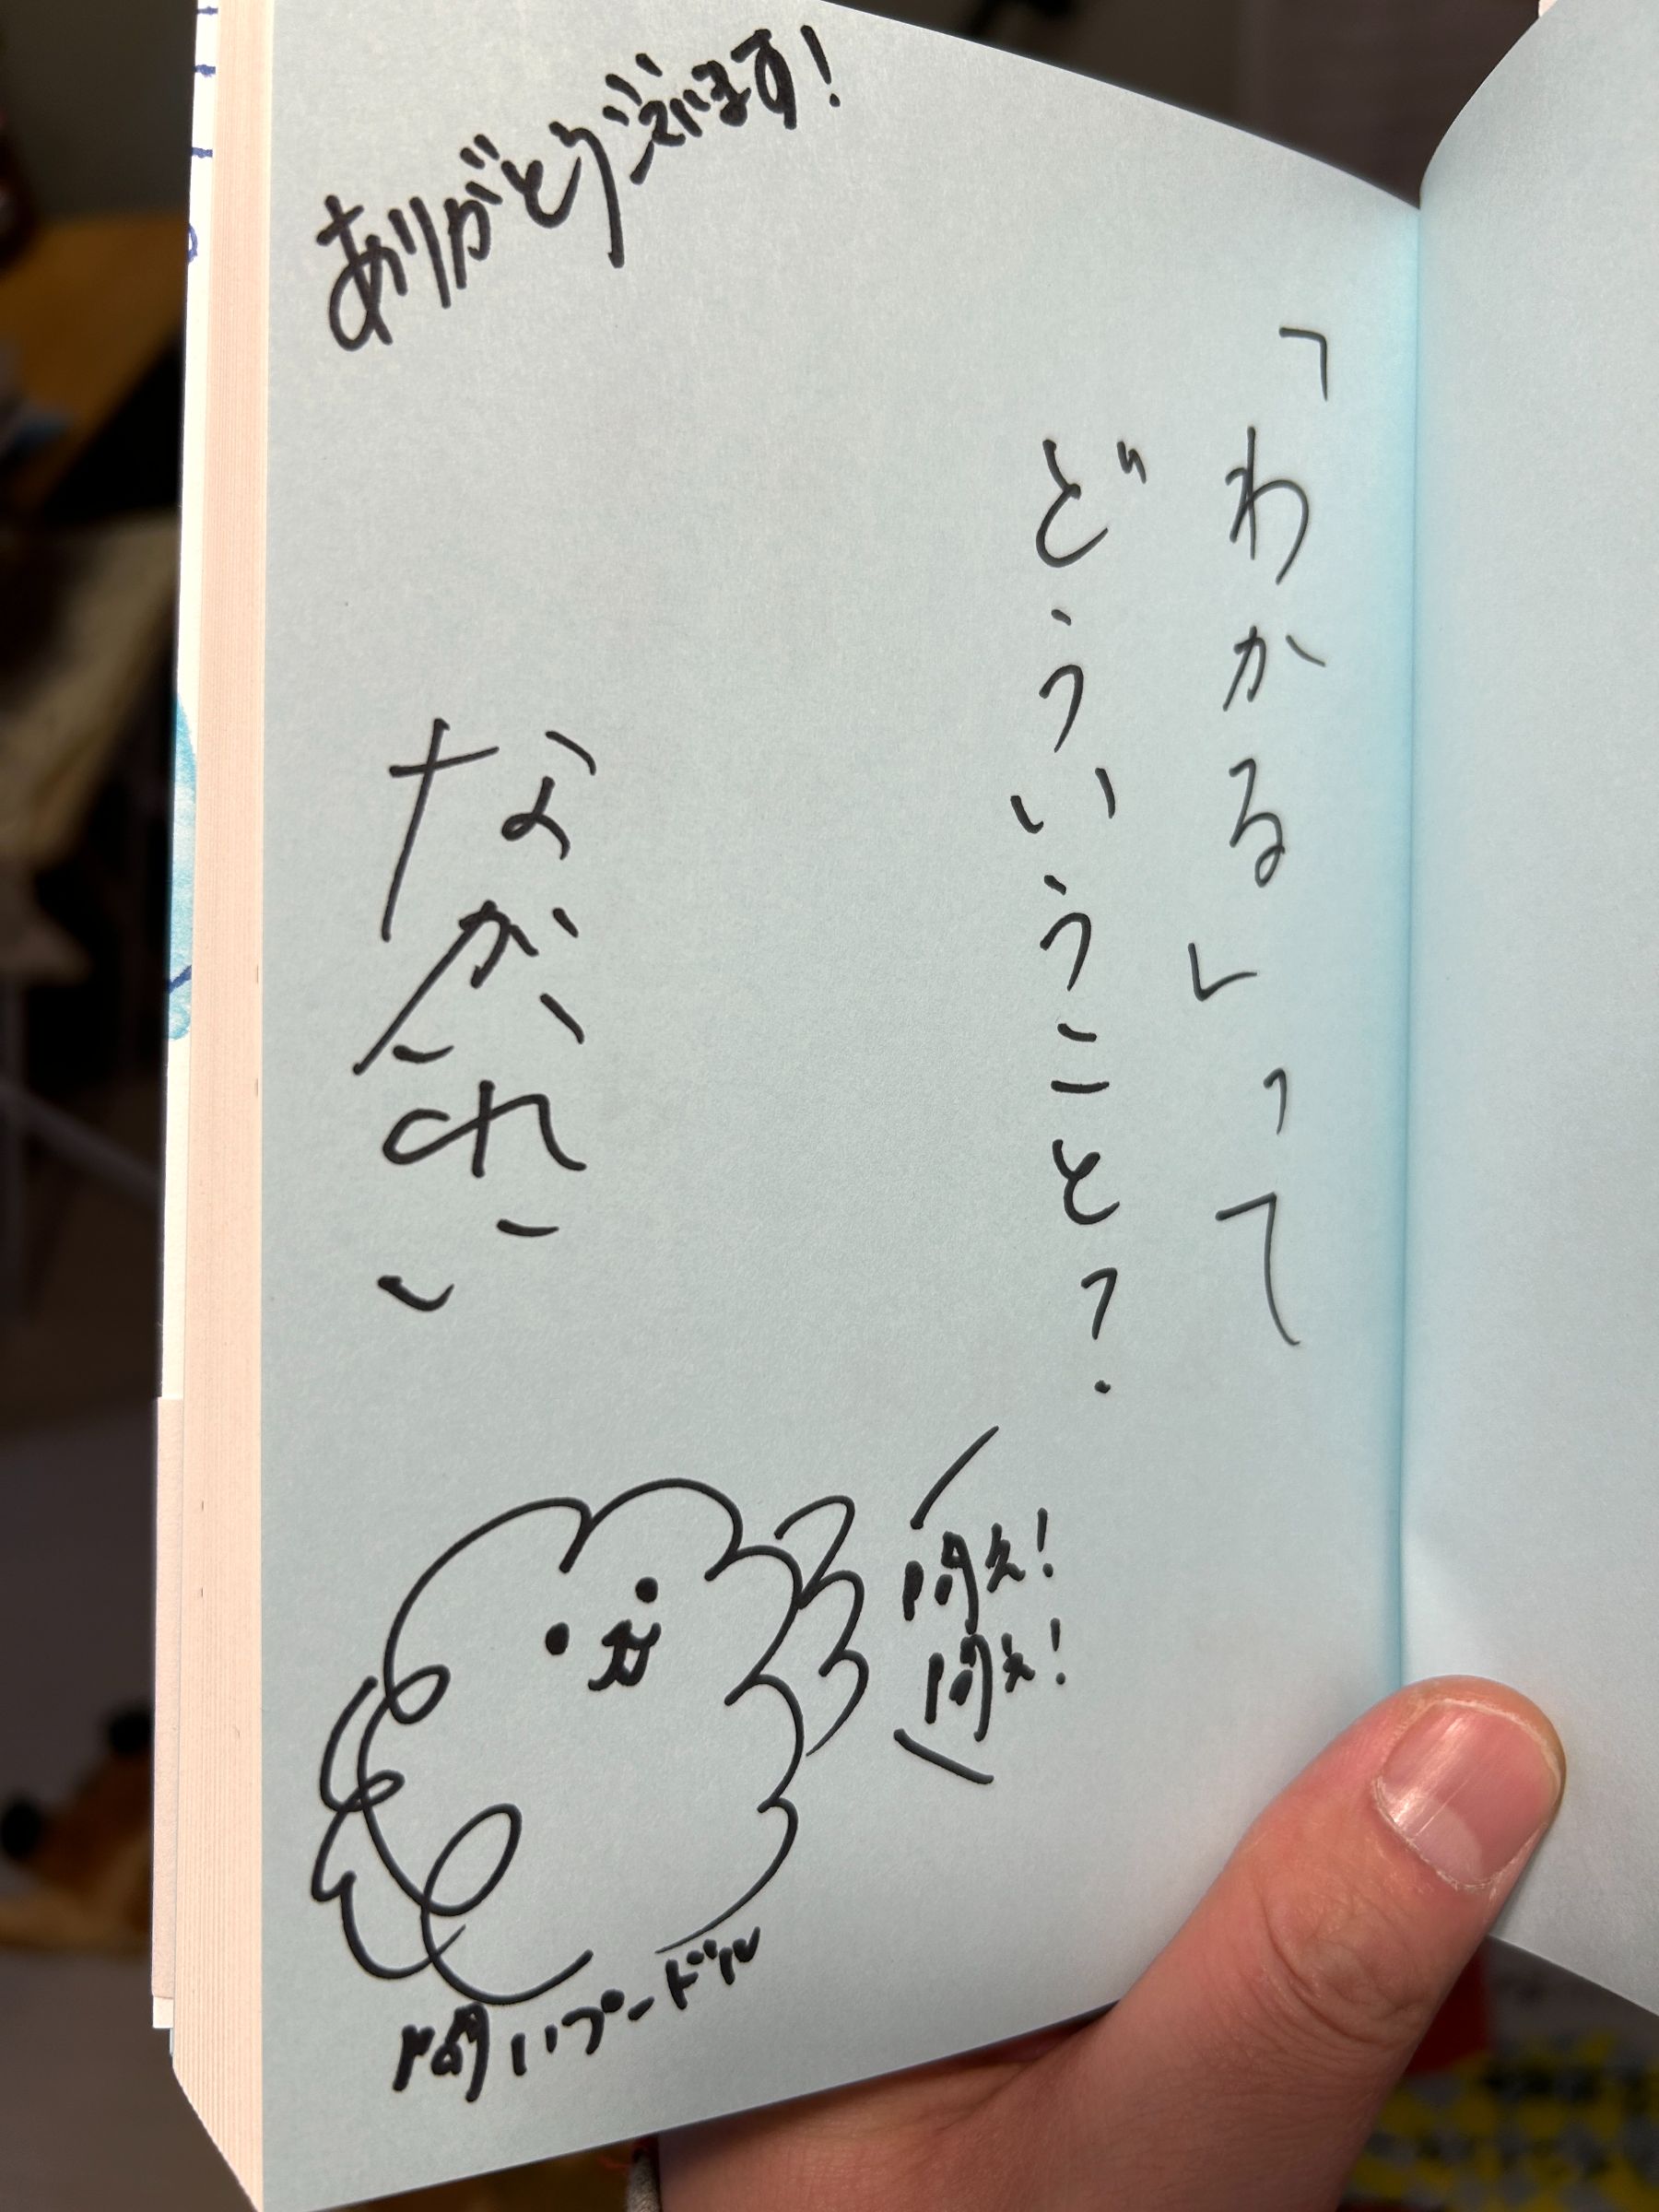 ありがとうございます!
「わかる」って
どういうこと?
問え!
問え!
問いプードル